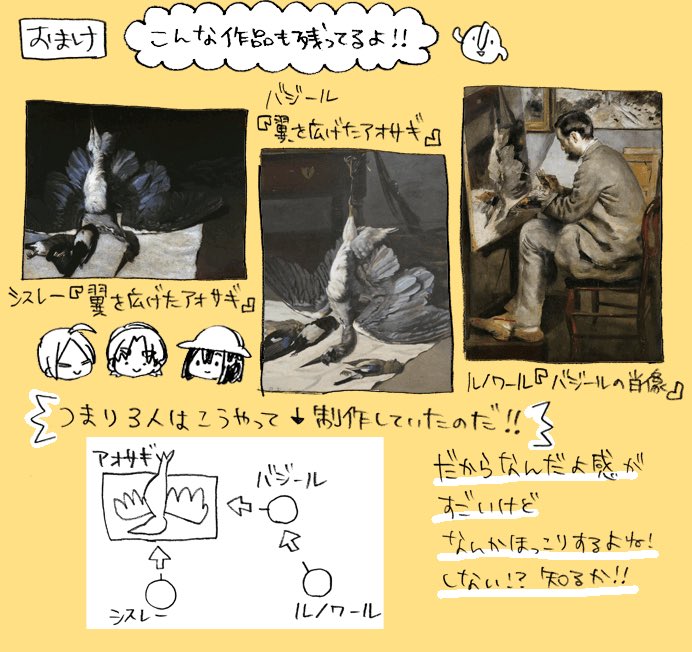 おまけ
こんな作品も残ってるよ!!
バジール
『翼を広げたアオサギ』
シスレー『翼を広げたアオサギ』
ルノワール『バジールの肖像』
つまり3人はこうやって↓制作していたのだ!!
アオサギ
バジール
シスレー
ルノワール
だからなんだよ感が
すごいけど
なんかほっこりするよね!
しない!?知るか!!